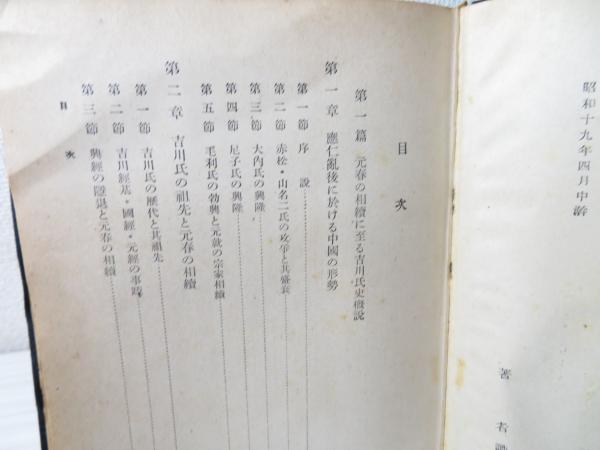 昭和十九年四月中澣
著者識
目次
第一篇 元春の相續に至る吉川氏史槪說
第一章 應仁亂後に於ける中國の形勢
第一節 序說
第二節 赤松・山名二氏の攻爭と其盛衰
第三節 大內氏の興隆
第四節 尼子氏の興隆
第五節 毛利氏の勃興と元就の宗家相續
第二章 吉川氏の祖先と元春の相續
第一節 吉川氏の歷代と其祖先
第二節 吉川經基・國經・元經の事蹟
第三節 興經の隱退と元春の相續
目次